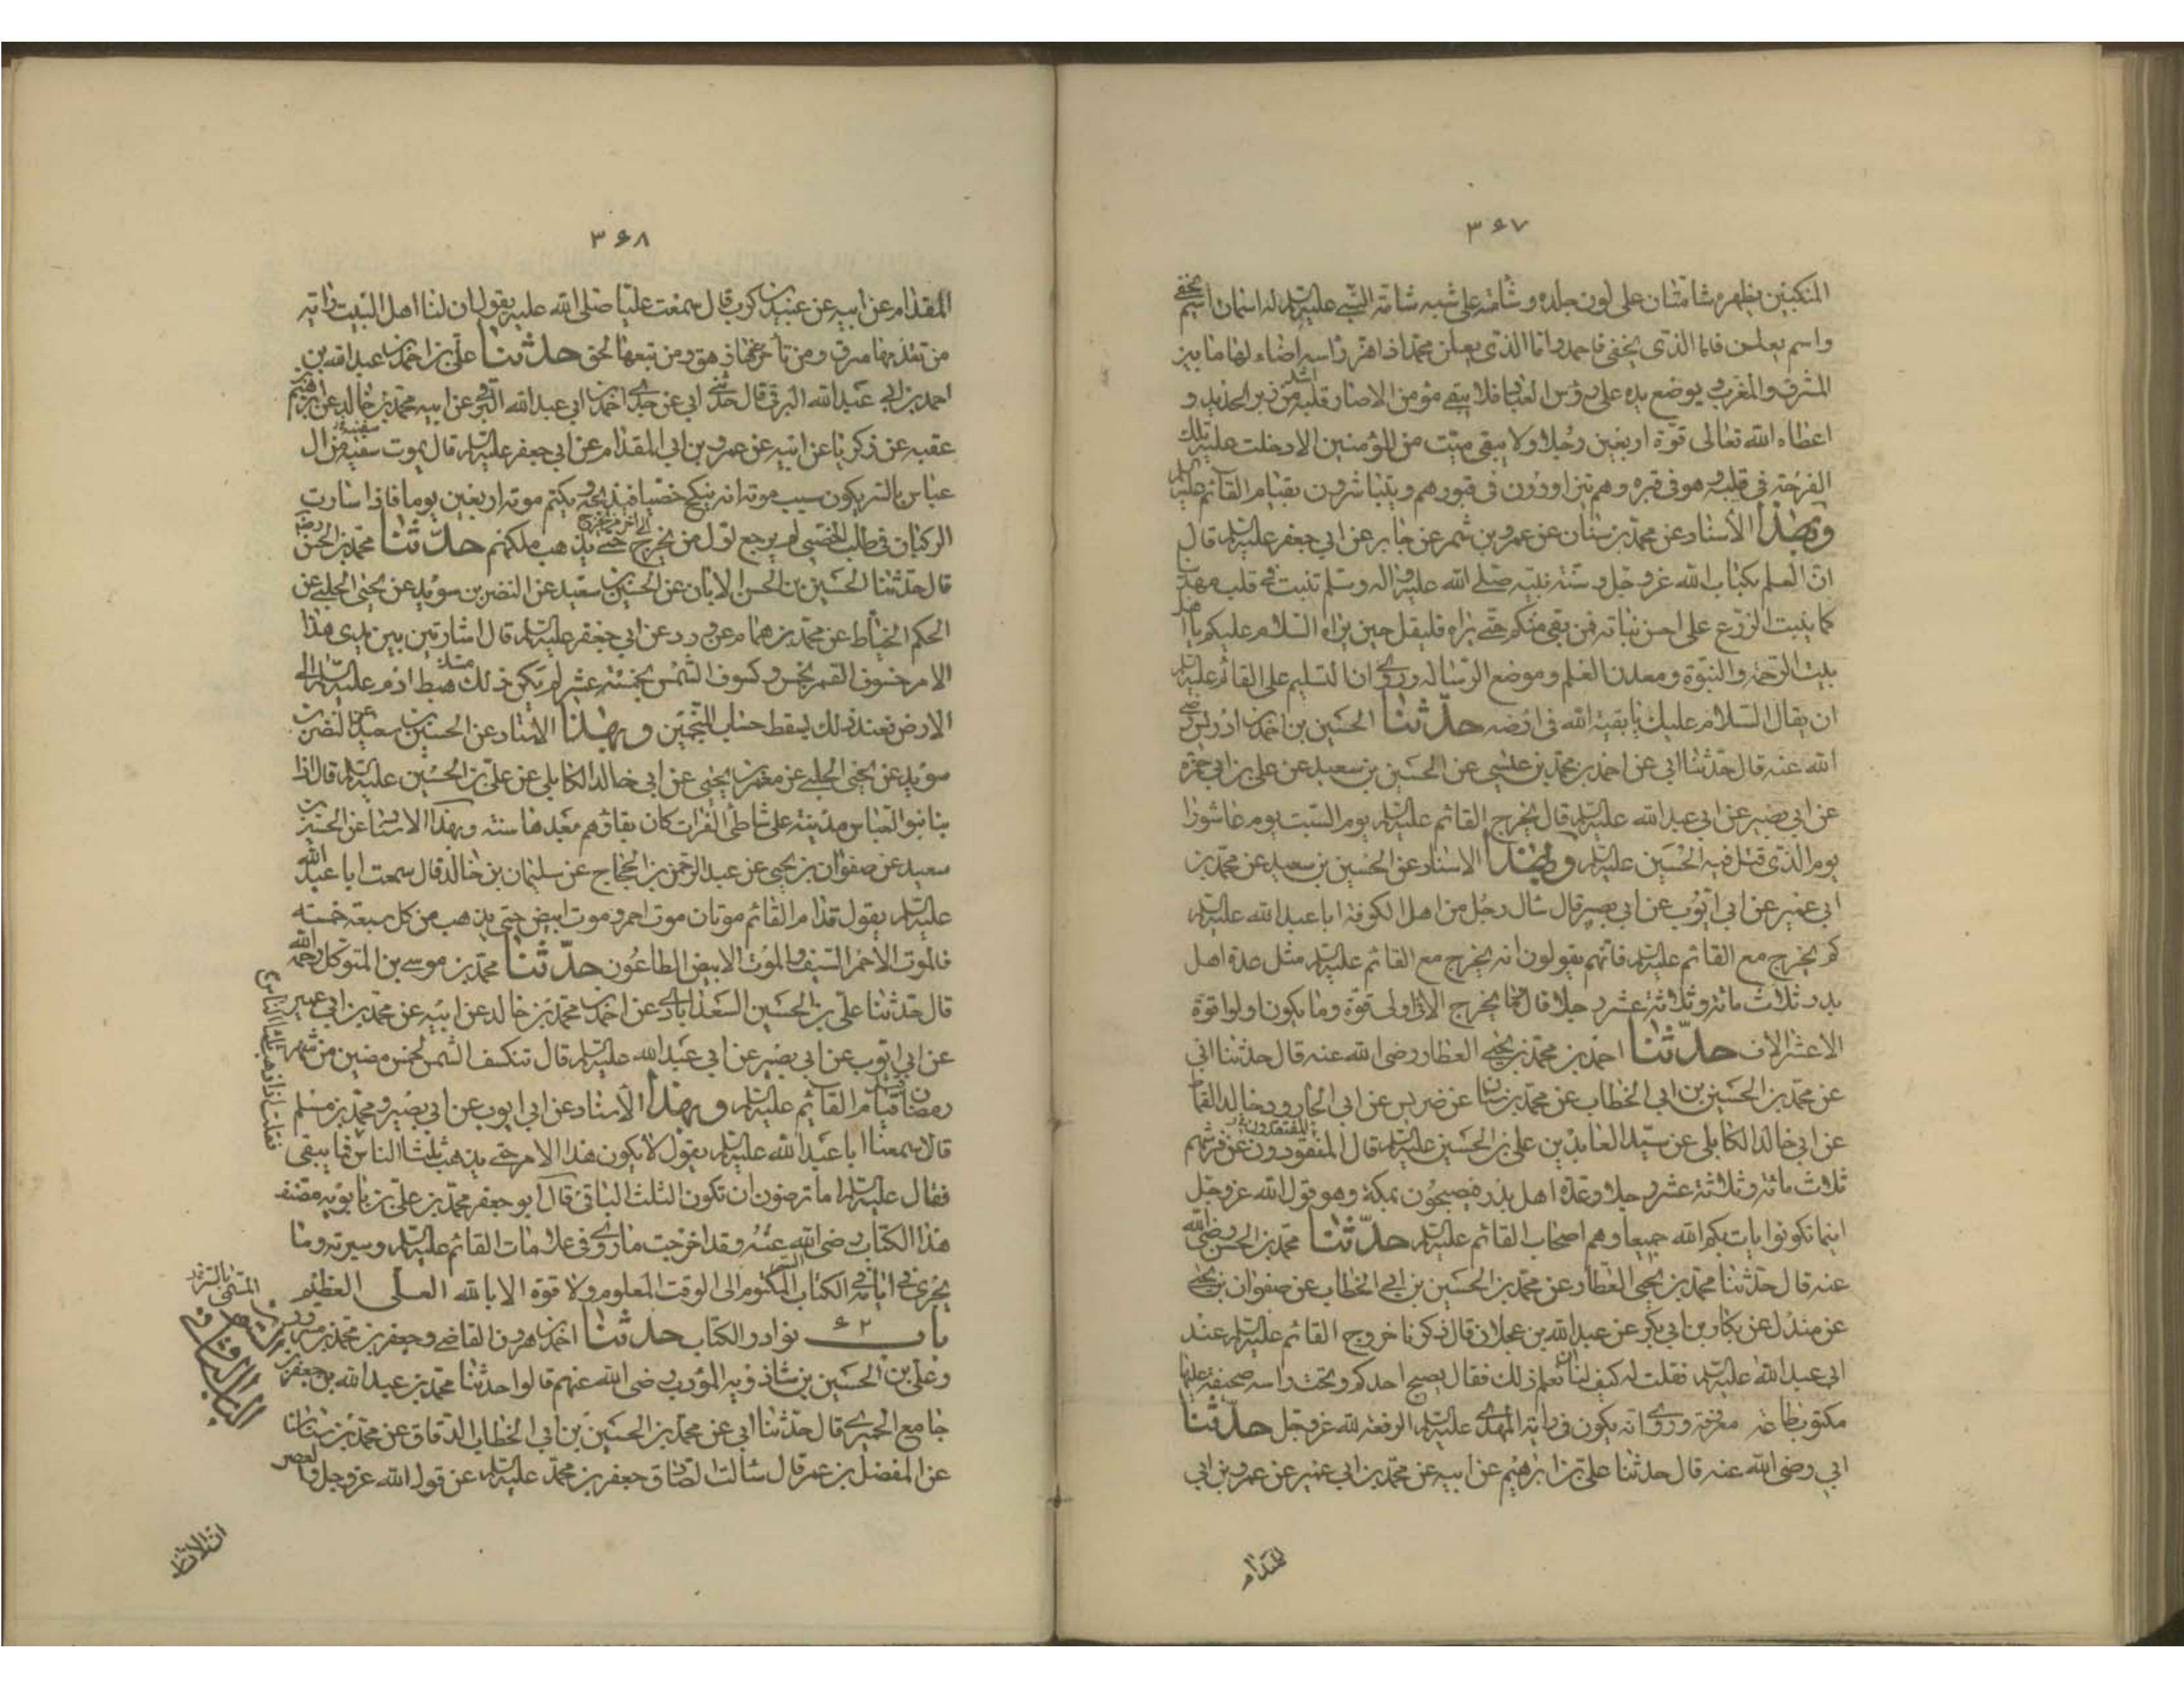 ٣٦٧
المنكبين بظهره شامتان على لون جلده وشامة على شبه شامة النبي عليه السلم له اسمان اسم يخفى
واسم يعلن فاما الذى يخفى فاحمد واما الذى يعلن محمد اذا هز راسه اضاء لها ما بين
المشرق والمغرب يوضع يده على رؤس العباد فلا يبقى مؤمن الا صار قلبه اشد من زبر الحديد و
اعطاه الله تعالى قوة اربعين رجلا ولا يبقى ميت من المؤمنين الا دخلت عليه تلك
الفرحة فى قلبه وهو فى قبره وهم يتزاورون فى قبورهم ويتباشرون بقيام القائم عليه السلم
وبهذا الاسناد عن محمد بن سنان عن عمرو بن شمر عن جابر عن ابي جعفر عليه السلم قال
ان العلم بكتاب الله عز وجل وسنة نبيه صلى الله عليه واله وسلم تنبت فى قلب مهدينا
كما ينبت الزرع على احسن نباته فمن بقى منكم حتى يراه فليقل حين يراه السلام عليكم يا اهل
بيت الرحمة والنبوة ومعدن العلم وموضع الرسالة وروى ان التسليم على القائم عليه السلم
ان يقال السلام عليك يا بقية الله فى ارضه حدثنا الحسين بن احمد بن ادريس رضى
الله عنه قال حدثنا ابي عن احمد بن محمد بن عيسى عن الحسين بن سعيد عن على بن ابي حمزة
عن ابي بصير عن ابي عبد الله عليه السلم قال يخرج القائم عليه السلم يوم السبت يوم عاشورا
يوم الذى قتل فيه الحسين عليه السلم وبهذا الاسناد عن الحسين بن سعيد عن محمد بن
ابي عمير عن ابي ايوب عن ابي بصير قال سال رجل من اهل الكوفة ابا عبد الله عليه السلم
كم يخرج مع القائم عليه السلم فانهم يقولون انه يخرج مع القائم عليه السلم مثل عدة اهل
بدر ثلاث مائة وثلاثة عشر رجلا قال ما يخرج الا فى اولى قوة وما يكون اولوا قوة
الا عشرة الاف حدثنا احمد بن محمد بن يحيى العطار رضى الله عنه قال حدثنا ابي
عن محمد بن الحسين بن ابي الخطاب عن محمد بن سنان عن ضريس عن ابي الجارود خالد القماط
عن ابي خالد الكابلى عن سيد العابدين على بن الحسين عليه السلم قال المفقودون عن فرشهم
ثلاث مائة وثلاثة عشر رجلا وعدة اهل بدر فيصبحون بمكة وهو قول الله عز وجل
اينما تكونوا يات بكم الله جميعا وهم اصحاب القائم عليه السلم حدثنا محمد بن الحسن رضى الله
عنه قال حدثنا محمد بن يحيى العطار عن محمد بن الحسين بن ابى الخطاب عن صفوان بن يحيى
عن مندل عن بكار بن ابي بكر عن عبد الله بن عجلان قال ذكرنا خروج القائم عليه السلم عند
ابى عبد الله عليه السلم فقلت له كيف لنا ان نعلم ذلك فقال يصبح احدكم وتحت راسه صحيفة عليها
مكتوب طاعة معروفة وروى انه يكون فى راية المهدى عليه السلم الرفعة لله عز وجل حدثنا
ابي رضى الله عنه قال حدثنا على بن ابرهيم عن ابيه عن محمد بن ابي عمير عن عمرو بن ابي
المقدام
٣٦٨
المقدام عن ابيه عن عبيد بن كرب قال سمعت عليا صلى الله عليه يقول ان لنا اهل البيت راية
من تقدمها مرق ومن تاخر عنها زهق ومن تبعها لحق حدثنا على بن احمد بن عبد الله بن
احمد بن ابى عبد الله البرقى قال حدثنى ابي عن جدى احمد بن ابي عبد الله البرقى عن ابيه محمد بن خالد عن ابرهيم
عقبه عن زكريا عن ابيه عن عمرو بن ابي المقدام عن ابي جعفر عليه السلم قال يموت سفيه من ال
عباس بالسر يكون سبب موته انه ينكح خصيا فيذبحه ويكتم موته اربعين يوما فاذا سارت
الركبان فى طلب الخصى لم يرجع اول من يخرج حتى يذهب ملكهم حدثنا محمد بن الحسن رضه
قال حدثنا الحسين بن الحسن الابان عن الحسين بن سعيد عن النضر بن سويد عن يحيى الحلبى عن
الحكم الخياط عن محمد بن همام عن ورد عن ابي جعفر عليه السلم قال اشارتين بين يدى هذا
الامر خسوف القمر بخمس وكسوف الشمس بخمسة عشر لم يكن ذلك منذ هبط ادم عليه السلم الى
الارض فعند ذلك يسقط حساب المنجمين وبهذا الاسناد عن الحسين بن سعيد عن النضر بن
سويد عن يحيى الحلبى عن معمر بن يحيى عن ابي خالد الكابلى عن على بن الحسين عليه السلم قال اذا
بنا بنو العباس مدينة على شاطى الفرات كان بقاؤهم بعدها سنة وبهذا الاسناد عن الحسين بن
سعيد عن صفوان بن يحيى عن عبد الرحمن بن الحجاج عن سليمان بن خالد قال سمعت ابا عبد الله
عليه السلم يقول قدام القائم موتان موت احمر وموت ابيض حتى يذهب من كل سبعة خمسة
فالموت الاحمر السيف والموت الابيض الطاعون حدثنا محمد بن موسى بن المتوكل رحمه الله
قال حدثنا على بن الحسين السعدابادى عن احمد بن محمد بن خالد عن ابيه عن محمد بن ابي عمير
عن ابي ايوب عن ابي بصير عن ابي عبد الله عليه السلم قال تنكسف الشمس لخمس مضين من شهر
رمضان قبل قيام القائم عليه السلم وبهذا الاسناد عن ابي ايوب عن ابي بصير ومحمد بن مسلم
قالا سمعنا ابا عبد الله عليه السلم يقول لا يكون هذا الامر حتى يذهب ثلثا الناس فما يبقى
فقلت اذا ذهب ثلثا الناس
فقال عليه السلم اما ترضون ان تكون الثلث الباقى قال ابو جعفر محمد بن على بن بابويه مصنف
هذا الكتاب رضى الله عنه وقد اخرجت ما روى فى علامات القائم عليه السلم وسيرته وما
يجرى فى ايامه فى الكتاب السر المكتوم الى الوقت المعلوم ولا قوة الا بالله العلى العظيم
باب ٦٢ نوادر الكتاب حدثنا احمد بن هرون القاضى وجعفر بن محمد بن مسرور
وعلى بن الحسين بن شاذويه المؤدب رضى الله عنهم قالوا حدثنا محمد بن عبد الله بن جعفر بن
جامع الحميرى قال حدثنا ابي عن محمد بن الحسين بن ابي الخطاب الدقاق عن محمد بن سنان
عن المفضل بن عمر قال سالت الصادق جعفر بن محمد عليه السلم عن قول الله عز وجل والعصر
ان الانسان